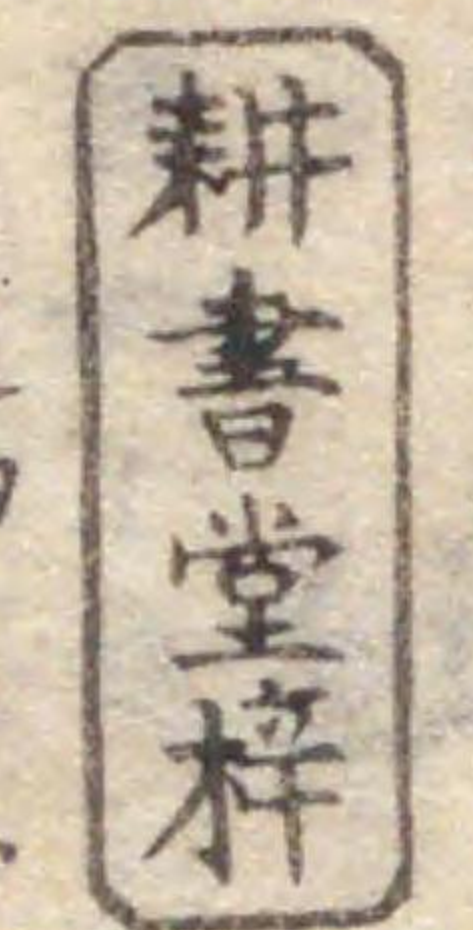 耕書堂梓